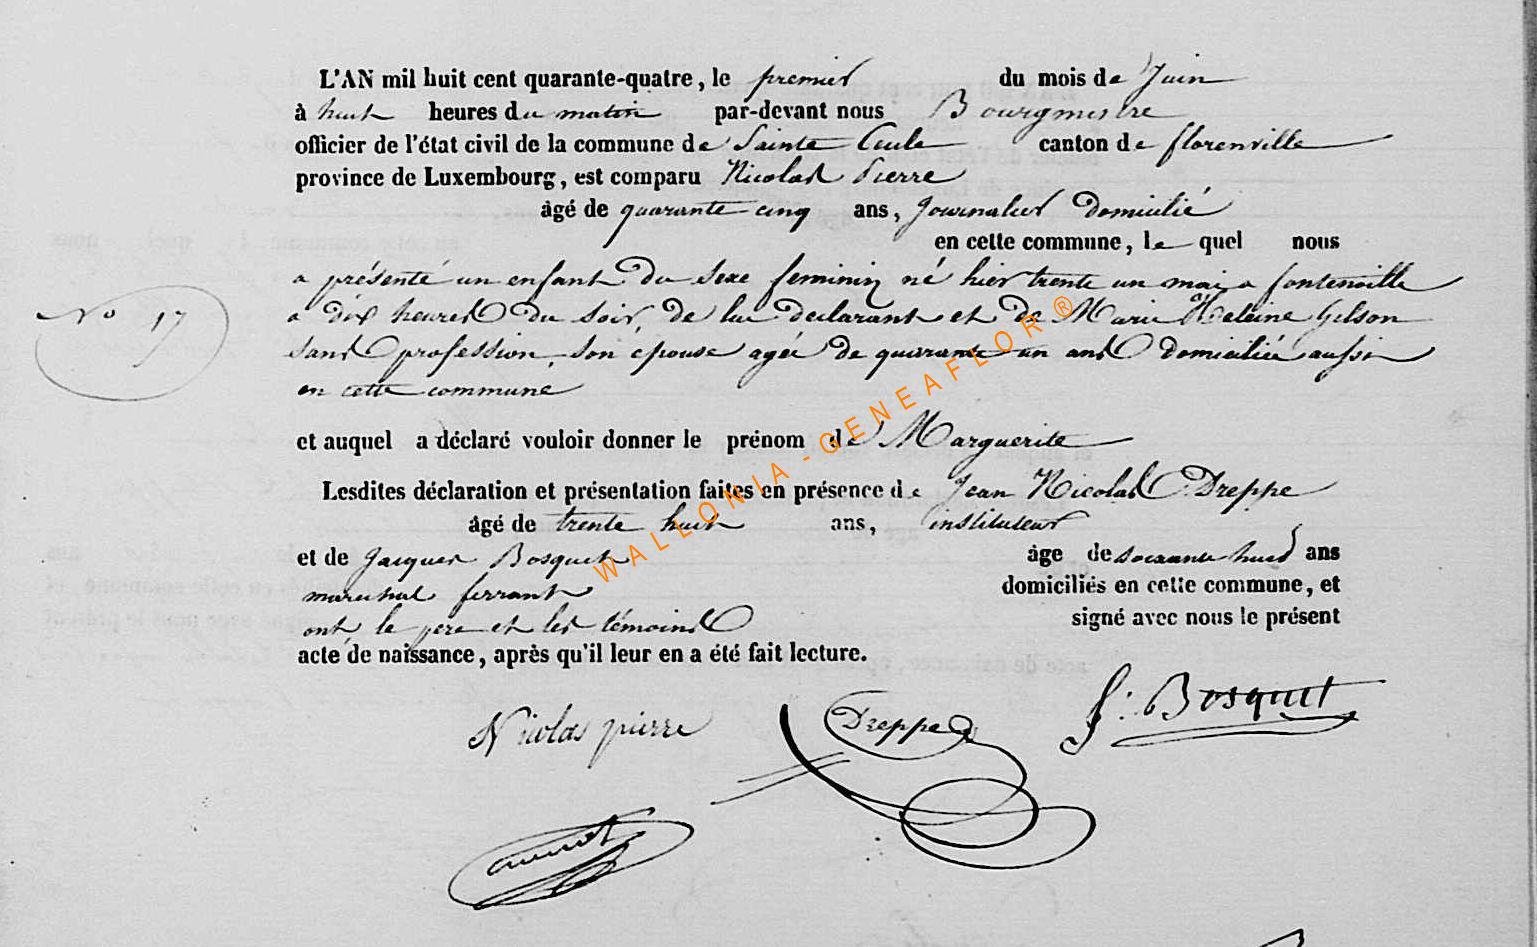 L'AN mil huit cent quarante-quatre, le premier du mois de Juin
à huit heures du matin par-devant nous Bourgmestre
officier de l'état civil de la commune de Sainte Cecile canton de florenville
province de Luxembourg, est comparu Nicolas Pierre
âgé de quarante cinq ans, Journalier Domicilié
en cette commune, le quel nous
a présenté un enfant du sexe feminin né hier trente un mai a fontenoille
N° 17
a dix heures du soir, de lui declarant et de Marie Heleine Gilson
sans profession son epouse agée de quarante un ans domiciliée aussi
en cette commune
et auquel a déclaré vouloir donner le prénom de Marguerite
Lesdites déclaration et présentation faites en présence de Jean Nicolas Dreppe
âgé de trente huit ans, instituteur
et de Jacques Bosquet âge de soixante huit ans
marechal ferrant domiciliés en cette commune, et
ont le pere et les témoins signé avec nous le présent
acte de naissance, après qu'il leur en a été fait lecture.
Nicolas pierre Dreppe J. Bosquet
WALLONIA-GENEAFLOR®